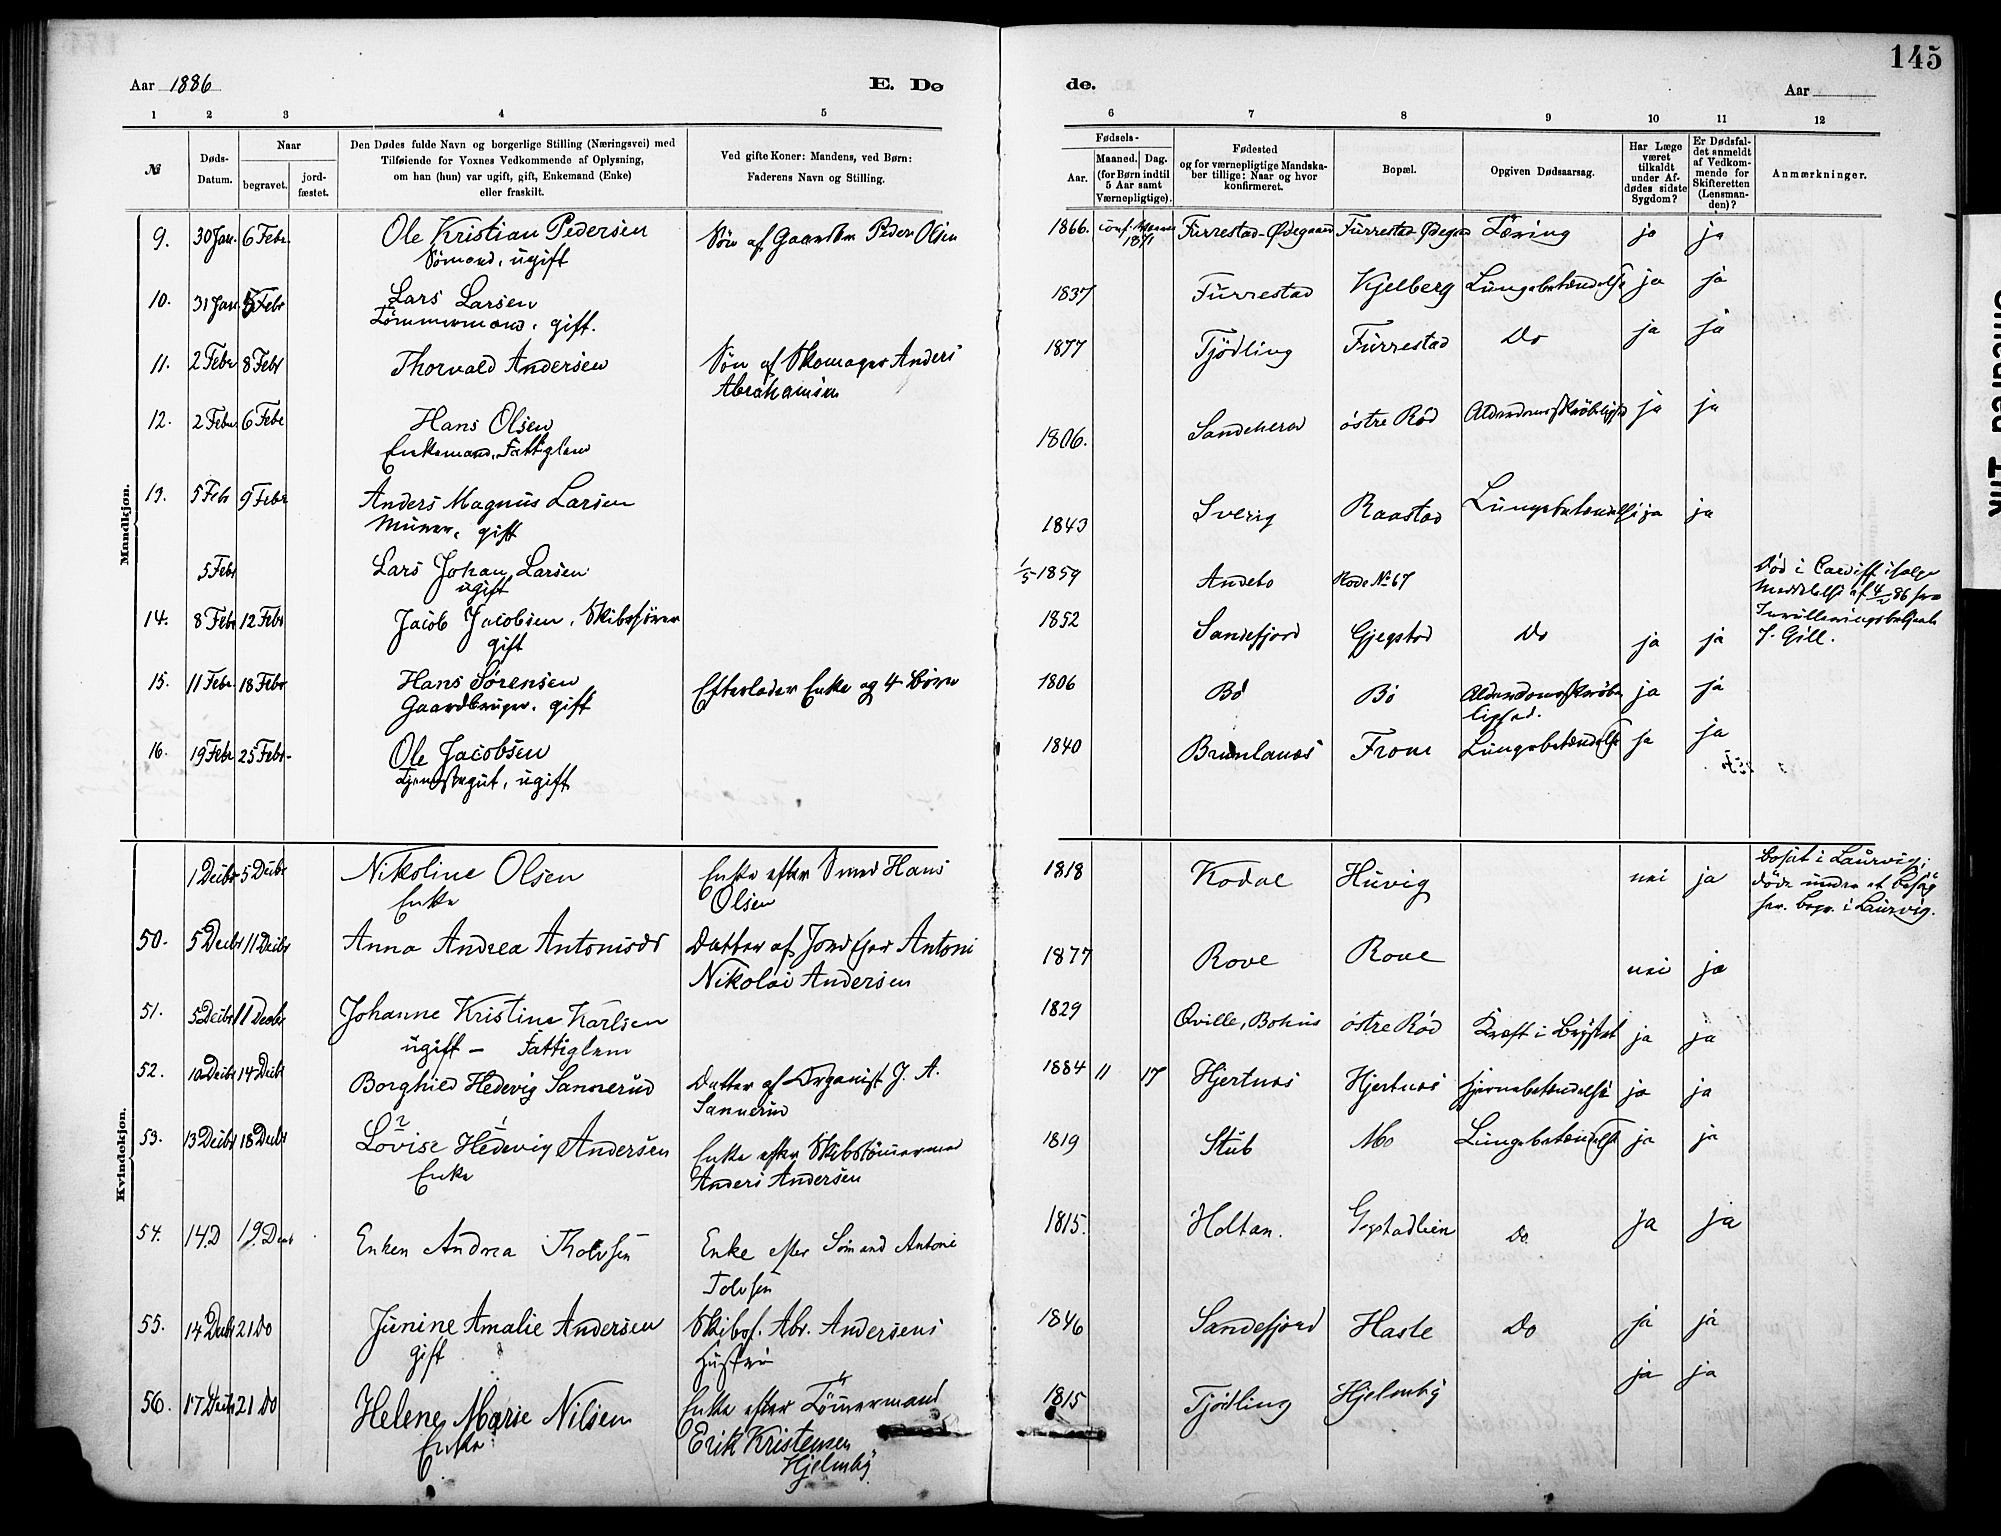 145
Aar 1886
E. Dø
de.
Aar
1 2 3 4 5
6 7 8 9 10 11 12
№
Døds-Datum.
Naar
begravet.
jordfæstet.
Den Dødes fulde Navn og borgerlige Stilling (Næringsvei) med
Tilføiende for Voxnes Vedkommende af Oplysning,
om han (hun) var ugift, gift, Enkemand (Enke)
eller fraskilt.
Ved gifte Koner: Mandens, ved Børn:
Faderens Navn og Stilling.
Fødsels-
Aar.
Maaned. Dag.
(for Børn indtil
5 Aar samt
Værnepligtige).
Fødested
og for værnepligtige Mandska-
ber tillige: Naar og hvor
konfirmeret.
Bopæl.
Opgiven Dødsaarsag.
Har Læge
været
tilkaldt
under Af-
dødes sidste
Sygdom?
Er Dødsfal-
det anmeldt
af Vedkom-
mende for
Skifteretten
(Lensman-
den)?
Anmærkninger.
Mandkjøn.
9. 30 Jan. 6 Febr. Ole Kristian Pedersen Søn af Gaardbr Peder Olsen 1866. Furrestad-Ødegaard Furrestad Ødegrd Tæring ja ja
Sømand, ugift
10. 31 Jan 5 Febr Lars Larsen 1837 Furrestad Kjelberg Lungebetændelse ja ja
Tømmermand, gift.
11. 2 Febr 8 Febr Thorvald Andersen Søn af Skomager Anders 1877 Tjödling Furrestad Do ja ja
Abrahamsen
12. 2 Febr 6 Febr Hans Olsen 1806. Sandeherd östre Röd Alderdomsskröbelighed ja ja
Enkemand, Fattiglem
13. 5 Febr 9 Febr Anders Magnus Larsen 1843 Sverig Raastad Lungebetændelse ja ja
Murer, gift
5 Febr Lars Johan Larsen 1/5 1859 Andebo Rode No 67 Död i Cardiff ifølge
ugift Meddelelse af 4/2 86 fra
Inrulleringsbetjent
J. Gill.
14. 8 Febr 12 Febr Jacob Jacobsen, Skibsfører 1852 Sandefjord Gjegstad Do ja ja
gift
15. 11 Febr 18 Febr Hans Sørensen Efterlader Enke og 4 Börn 1806 Bö Bö Alderdomsskröbe ja ja
Gaardbruger. gift lighed.
16. 19 Febr 25 Febr. Ole Jacobsen 1840 Brunlanæs Fron Lungebetændelse ja ja
Tjenestegut, ugift
Kvindekjøn.
1 Decbr 5 Decbr Nikoline Olsen Enke efter Smed Hans 1818 Kodal Huvig nei ja bosat i Laurvig;
Enke Olsen döde under et besøg
her. begr. i Laurvig.
50. 5 Decbr 11 Decbr Anna Andrea Antonisdr Datter af Jordejer Antoni 1877 Rove Rove nei ja
Nikolai Andersen
51. 5 Decbr 11 Decbr Johanne Kristine Karlsen 1829 Qville, Bohus östre Röd Kræft i Brystet ja ja
ugift – Fattiglem
52. 10 Decbr 14 Decbr Borghild Hedevig Sannerud Datter af Organist J. A. 1884 11 17 Hjertnæs Hjertnæs Hjernebetændelse ja ja
Sannerud
53. 13 Decbr 18 Decbr Lovise Hedevig Andersen Enke efter Skibstömmermand 1819 Stub Mo Lungebetændelse ja ja
2 1
Enke Anders Andersen
54. 14. D 19. Decb Enken Andrea Tholvsen Enke efter Sømand Antoni 1815. Holtan. Gogstadleien Do ja ja
Tolvsen
55. 14 Decbr 21 Do Junine Amalie Andersen Skibsf. Abr. Andersens 1846 Sandefjord Hasle Do ja ja
gift Hustru
56. 17 Decbr 21 Do Helene Marie Nilsen Enke efter Tömmermand 1815 Tjödling Hjelmby ja ja
Enke Erik Kristensen
Hjelmby